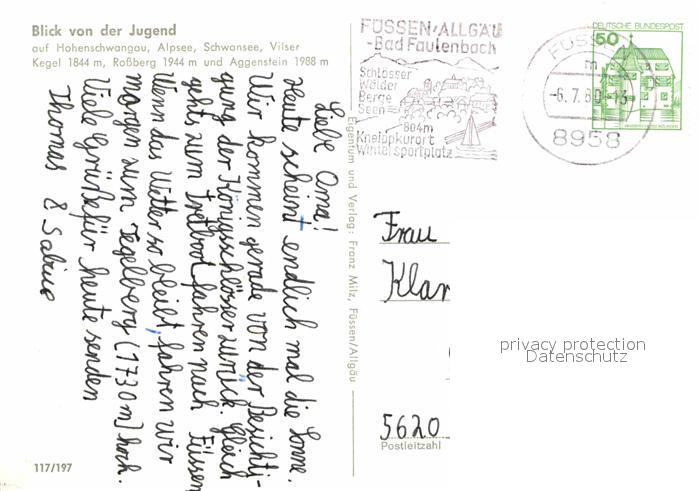 Blick von der Jugend
auf Hohenschwangau, Alpsee, Schwansee, Vilser
Kegel 1844 m, Roßberg 1944 m und Aggenstein 1988 m
Liebe Oma!
Heute scheint endlich mal die Sonne.
Wir kommen gerade von der Besichti-
gung der Königsschlösser zurück. Gleich
gehts zum Tretboot fahren nach Füssen
Wenn das Wetter so bleibt, fahren wir
morgen zum Tegelberg (1730 m) hoch.
Viele Grüße für heute senden
Thomas & Sabine
117/197
Eigentum und Verlag: Franz Milz, Füssen/Allgäu
FÜSSEN/ALLGÄU
-Bad Faulenbach
Schlösser
Wälder
Berge
Seen
804m
Kneippkurort
Wintersportplatz
FÜSSEN
m
-6.7.80-13
8958
DEUTSCHE BUNDESPOST
50
Frau
Klar
privacy protection
Datenschutz
5620
Postleitzahl